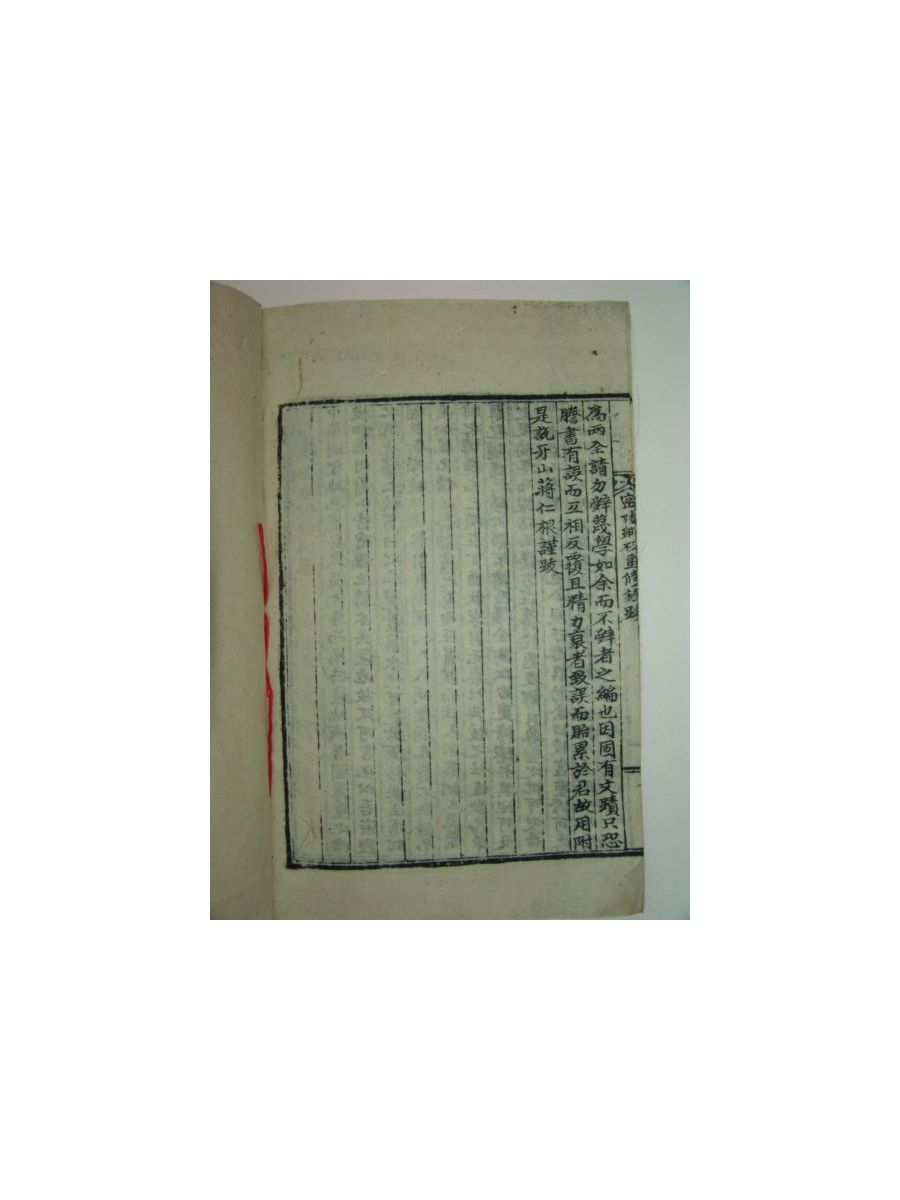 密陽鄕校重修錄跋
爲兩全請勿辭蔑學如余而不辭者之編也因固有文蹟只恐
謄書有誤而互相反覆且精力衰者致誤而貽累於君故用附
是說牙山蔣仁根謹跋